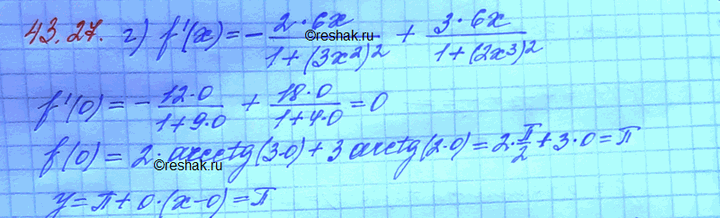 43.27. г) f'(x) = - (2·6x)/(1+(3x²)²) + (3·6x)/(1+(2x³)²)
©reshak.ru
f'(0) = - (12·0)/(1+9·0) + (18·0)/(1+4·0) = 0
f(0) = 2·arcctg(3·0) + 3 arctg(2·0) = 2·π/2 + 3·0 = π
y = π + 0·(x-0) = π